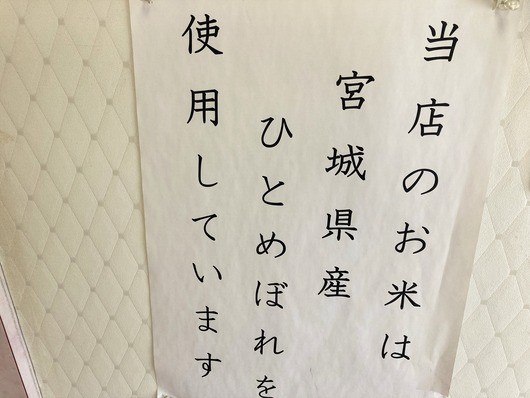 当店のお米は
宮城県産
ひとめぼれを
使用しています